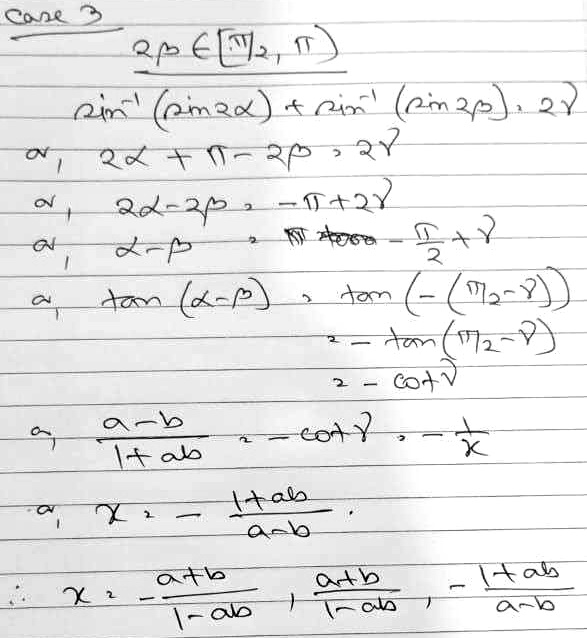 Case 3
2β ∈ [π/2, π)
sin⁻¹ (sin2α) + sin⁻¹ (sin2β) = 2γ
or, 2α + π - 2β = 2γ
or, 2α - 2β = -π + 2γ
or, α - β = - π/2 + γ
or, tan (α - β) = tan (-(π/2 - γ))
= - tan (π/2 - γ)
= - cot γ
or, (a - b)/(1 + ab) = - cot γ = - 1/x
or, x = - (1 + ab)/(a - b) .
∴ x = - (a + b)/(1 - ab) , (a + b)/(1 - ab) , - (1 + ab)/(a - b)